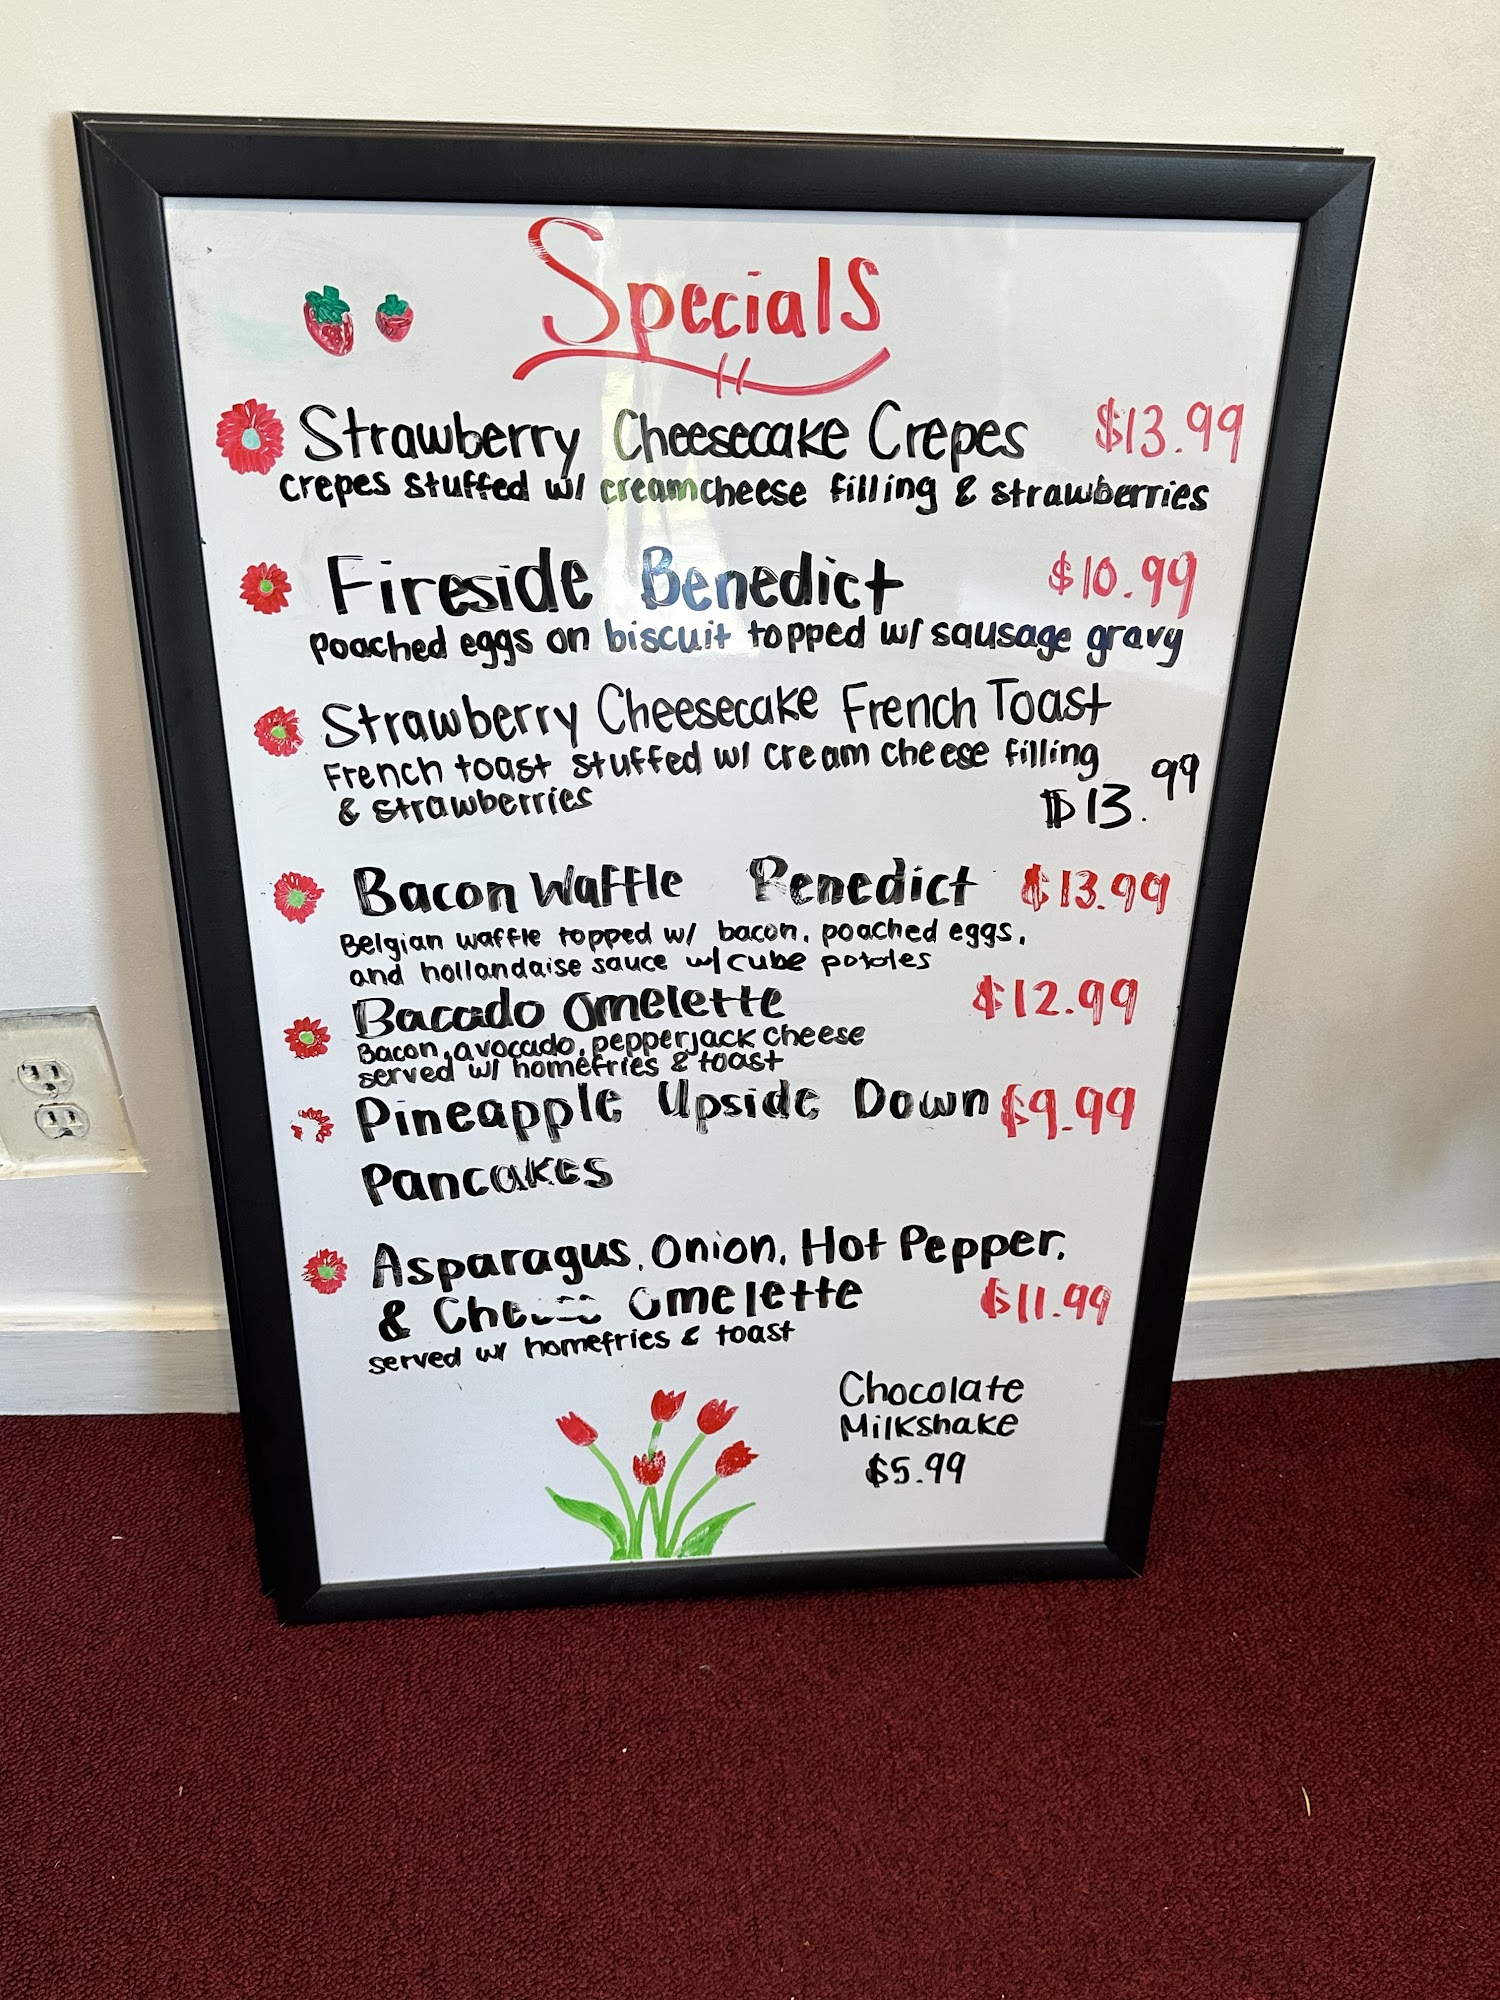 Specials
Strawberry Cheesecake Crepes $13.99
crepes stuffed w/ creamcheese filling & strawberries
Fireside Benedict $10.99
poached eggs on biscuit topped w/ sausage gravy
Strawberry Cheesecake French Toast
French toast stuffed w/ cream cheese filling
& strawberries $13.99
Bacon Waffle Benedict $13.99
Belgian waffle topped w/ bacon, poached eggs,
and hollandaise sauce w/ cube
Bacado Omelette $12.99
Bacon, avocado, pepperjack cheese
served w/ homefries & toast
Pineapple Upside Down $9.99
Pancakes
Asparagus, Onion, Hot Pepper,
& Cheese Omelette $11.99
served w/ homefries & toast
Chocolate
Milkshake
$5.99